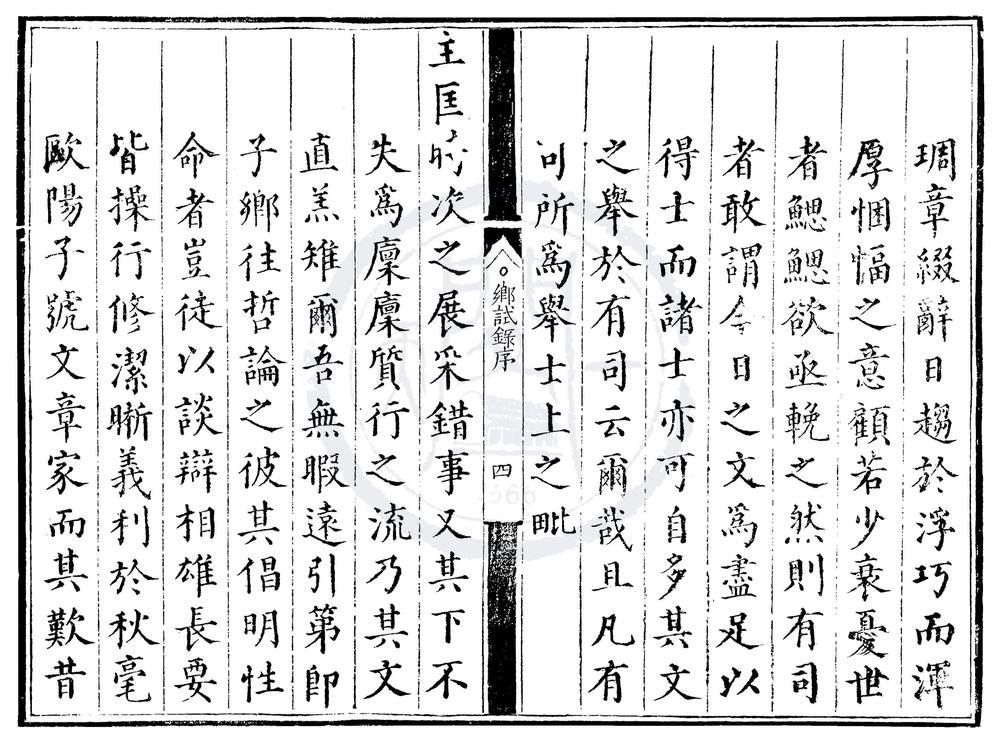 琱章綴辭日趨於浮巧而渾
厚悃愊之意顧若少衰憂世
者鰓鰓欲亟輓之然則有司
者敢謂今日之文爲盡足以
得士而諸士亦可自多其文
之舉於有司云爾哉且凡有
司所爲舉士上之毗
鄉試錄序
四
主匡時次之展采錯事又其下不
失爲廩廩質行之流乃其文
直羔雉爾吾無暇遠引第卽
子鄉往哲論之彼其倡明性
命者豈徒以談辯相雄長要
皆操行修潔晰義利於秋毫
歐陽子號文章家而其歎昔